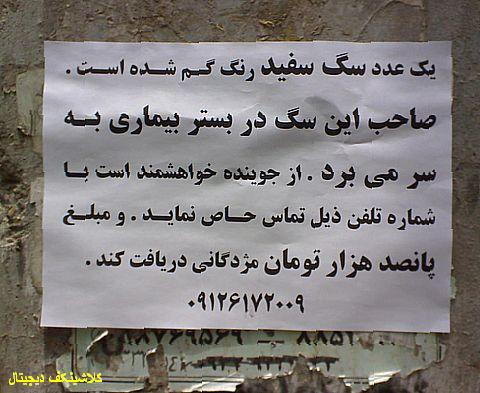 یک عدد سگ سفید رنگ گم شده است .
صاحب این سگ در بستر بیماری به
سر می برد . از جوینده خواهشمند است با
شماره تلفن ذیل تماس حاص نماید . و مبلغ
پانصد هزار تومان مژدگانی دریافت کند .
۰۹۱۲۶۱۷۲۰۰۹
کلاشینکف دیجیتال